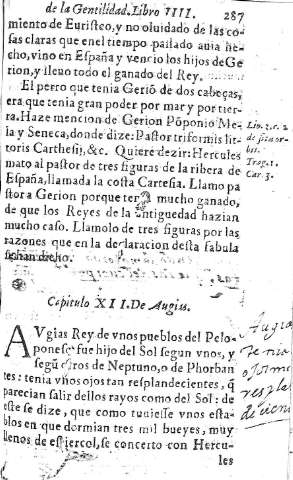 de la Gentilidad. Libro IIII. 287
miento de Euristeo, y no oluidado de las co-
sas claras que en el tiempo passado auia he-
cho, vino en España y vencio los hijos de Ge
rion, y lleuo todo el ganado del Rey.
El perro que tenia Geriõ de dos cabeças,
era que tenia gran poder por mar y por tier-
ra. Haze mencion de Gerion Põponio Me-
la y Seneca, donde dize: Pastor triformis lit-
toris Carthesij, &c. Quiere dezir: Hercules
mato al pastor de tres figuras de la ribera de
España, llamada la costa Cartesia. Llamo pa
stor a Gerion porque ter mucho ganado,
de que los Reyes de la antiguedad hazian
mucho caso. Llamolo de tres figuras por las
razones que en la declaracion desta fabula
se han dicho.
Lib. 2. c. 2.
de situ or-
bis.
Trag. 1.
Car. 3.
Capitulo XII. De Augias.
AVgias Rey de vnos pueblos del Pelo-
ponese fue hijo del Sol segun vnos, y
segũ otros de Neptuno, o de Phorban
tes: tenia vnos ojos tan resplandecientes, q̃
parecian salir dellos rayos como del Sol: de
este se dize, que como tuuiesse vnos esta-
blos en que dormian tres mil bueyes, muy
llenos de estiercol, se concerto con Hercu-
les
Augias
tenia
resplã